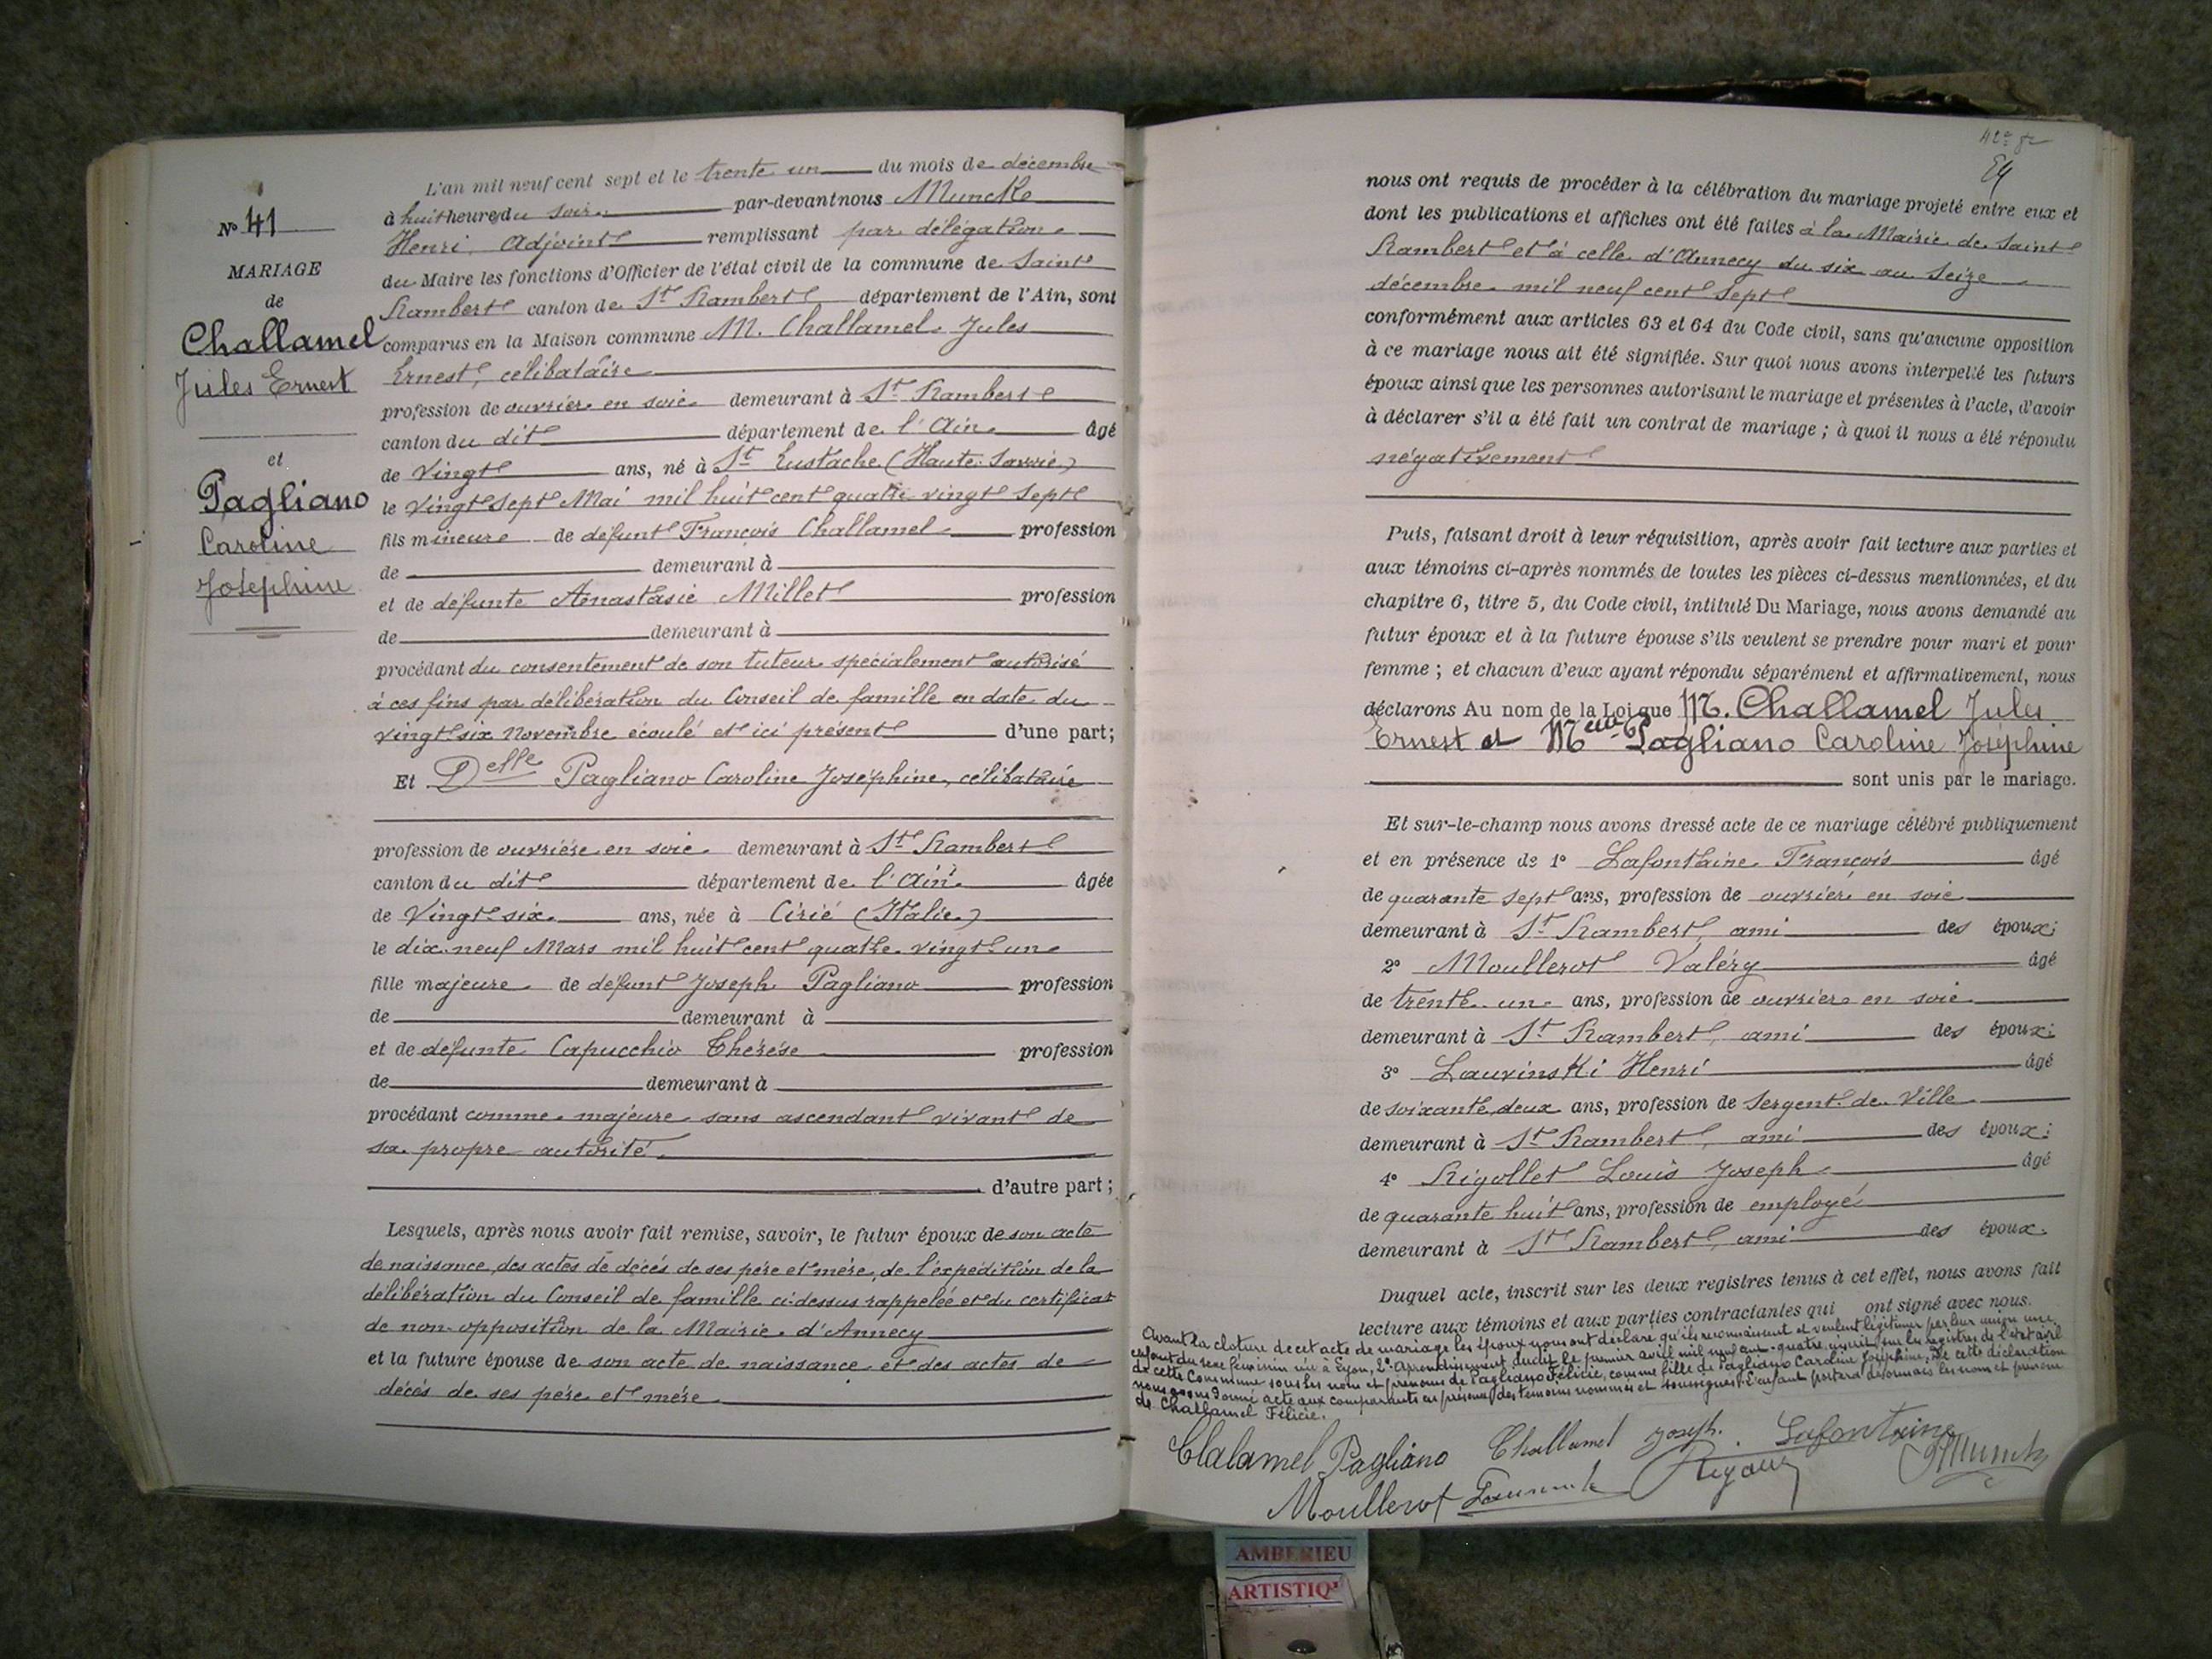 L'an mil neuf cent sept et le trente un du mois de décembre
à huit heures du soir par-devant nous Muncke
Henri, Adjoint remplissant par délégation
du Maire les fonctions d'Officier de l'état civil de la commune de Saint
Rambert canton de St Rambert département de l'Ain, sont
comparus en la Maison commune M. Challamel Jules
Ernest, célibataire
profession de ouvrier en soie demeurant à St Rambert
canton du dit département de l'Ain âgé
de vingt ans, né à St Eustache (Haute Savoie)
le vingt sept Mai mil huit cent quatre vingt sept
fils mineur de défunt François Challamel profession
de demeurant à
et de défunte Anastasie Millet profession
de demeurant à
procédant du consentement de son tuteur spécialement autorisé
à ces fins par délibération du Conseil de famille en date du
vingt six Novembre écoulé et ici présent d'une part;
Et Delle Pagliano Caroline Joséphine, célibataire
profession de ouvrière en soie demeurant à St Rambert
canton du dit département de l'Ain âgée
de vingt six ans, née à Cirié (Italie)
le dix neuf Mars mil huit cent quatre vingt un
fille majeure de défunt Joseph Pagliano profession
de demeurant à
et de défunte Capucchio Thérèse profession
de demeurant à
procédant comme majeure sans ascendant vivant de
sa propre autorité
d'autre part;
Lesquels, après nous avoir fait remise, savoir, le futur époux de son acte
de naissance, des actes de décès de ses père et mère, de l'expédition de la
délibération du Conseil de famille ci-dessus rappelée et du certificat
de non-opposition de la Mairie d'Annecy
et la future épouse de son acte de naissance et des actes de
décès de ses père et mère
No 41
MARIAGE
de
Challamel
Jules Ernest
et
Pagliano
Caroline
Joséphine
nous ont requis de procéder à la célébration du mariage projeté entre eux et
dont les publications et affiches ont été faites à la Mairie de Saint
Rambert et à celle d'Annecy du six au seize
décembre mil neuf cent sept
conformément aux articles 63 et 64 du Code civil, sans qu'aucune opposition
à ce mariage nous ait été signifiée. Sur quoi nous avons interpellé les futurs
époux ainsi que les personnes autorisant le mariage et présentes à l'acte, d'avoir
à déclarer s'il a été fait un contrat de mariage; à quoi il nous a été répondu
négativement
Puis, faisant droit à leur réquisition, après avoir fait lecture aux parties et
aux témoins ci-après nommés de toutes les pièces ci-dessus mentionnées, et du
chapitre 6, titre 5, du Code civil, intitulé Du Mariage, nous avons demandé au
futur époux et à la future épouse s'ils veulent se prendre pour mari et pour
femme; et chacun d'eux ayant répondu séparément et affirmativement, nous
déclarons Au nom de la Loi que M. Challamel Jules
Ernest et Melle Pagliano Caroline Joséphine
sont unis par le mariage.
Et sur-le-champ nous avons dressé acte de ce mariage célébré publiquement
et en présence de 1o Lafontaine François âgé
de quarante sept ans, profession de ouvrier en soie
demeurant à St Rambert, ami des époux;
2o Moullerot Valéry âgé
de trente un ans, profession de ouvrier en soie
demeurant à St Rambert, ami des époux;
3o Lauvinski Henri âgé
de soixante deux ans, profession de Sergent de Ville
demeurant à St Rambert, ami des époux;
4o Rigollet Louis Joseph âgé
de quarante huit ans, profession de employé
demeurant à St Rambert, ami des époux.
Duquel acte, inscrit sur les deux registres tenus à cet effet, nous avons fait
lecture aux témoins et aux parties contractantes qui ont signé avec nous.
Avant la cloture de cet acte de mariage les époux nous ont déclaré qu'ils reconnaissent et veulent légitimer par leur union une
enfant du sexe féminin née à Lyon, 2e arrondissement, le premier avril mil neuf cent quatre, inscrite sur les registres de l'état civil
de cette Commune sous les nom et prénoms de Pagliano Félicie, comme fille de Pagliano Caroline Joséphine. De cette déclaration
nous avons donné acte aux comparants en présence des témoins nommés et soussignés. L'enfant portera désormais les nom et prénom
de Challamel Félicie.
Clalamel Pagliano Challamel Joseph. Lafontaine
Moullerot
AMBERIEU
ARTISTIQ